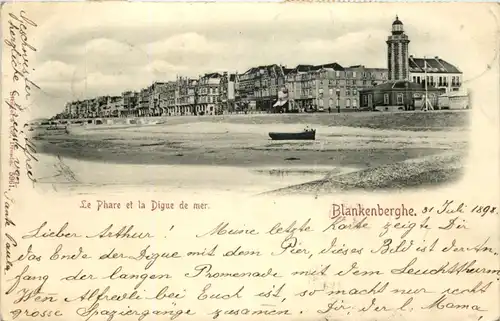 Le Phare et la Digue de mer.
Blankenberghe. 31 Juli 1898
Lieber Arthur! Meine letzte Karte zeigte Dir
das Ende der Digue mit dem Pier, dieses Bild ist der An-
fang der langen Promenade mit dem Leuchtthurm
Wenn Alfredli bei Euch ist, so macht nur recht
grosse Spaziergänge zusamen. Dir, der l. Mama,
herzliche Grüsse von
Tank Paula